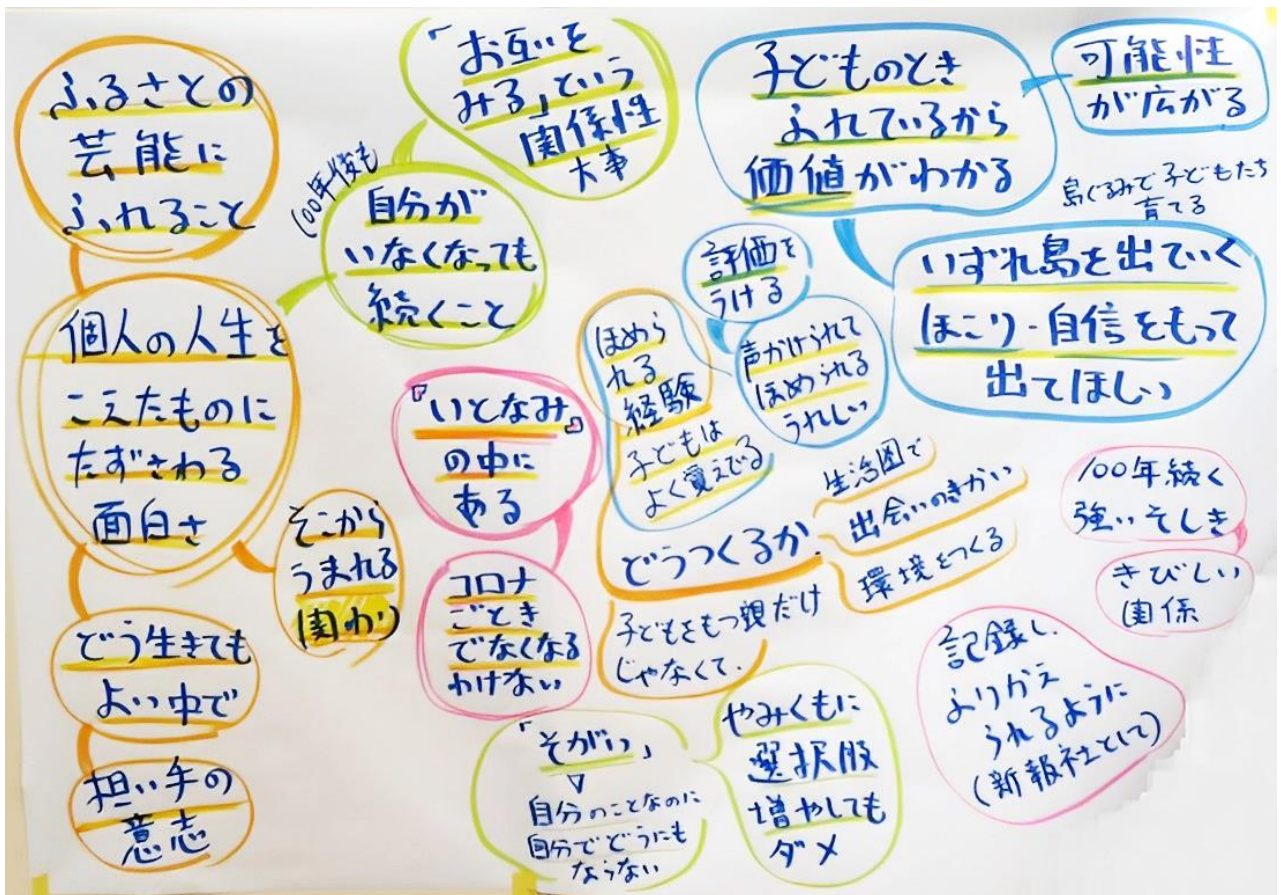 ふるさとの
芸能に
ふれること
個人の人生を
こえたものに
たずさわる
面白さ
どう生きても
よい中で
担い手の
意志
そこから
うまれる
関わり
100年後も
自分が
いなくなっても
続くこと
「お互いを
みる」という
関係性
大事
『いとなみ』
の中に
ある
コロナ
ごとき
でなくなる
わけない
「そがい」
自分のことなのに
自分でどうにも
ならない
やみくもに
選択肢
増やしても
ダメ
子どものとき
ふれているから
価値がわかる
可能性
が広がる
島ぐるみで子どもたち
育てる
いずれ島を出ていく
ほこり・自信をもって
出てほしい
評価を
うける
声かけられて
ほめられる
うれしい
ほめら
れる
経験
子どもは
よく覚えてる
どうつくるか.
生活圏で
出会いのきかい
環境をつくる
子どもをもつ親だけ
じゃなくて.
100年続く
強いそしき
きびしい
関係
記録し、
ふりかえ
られるように
(新報社として)